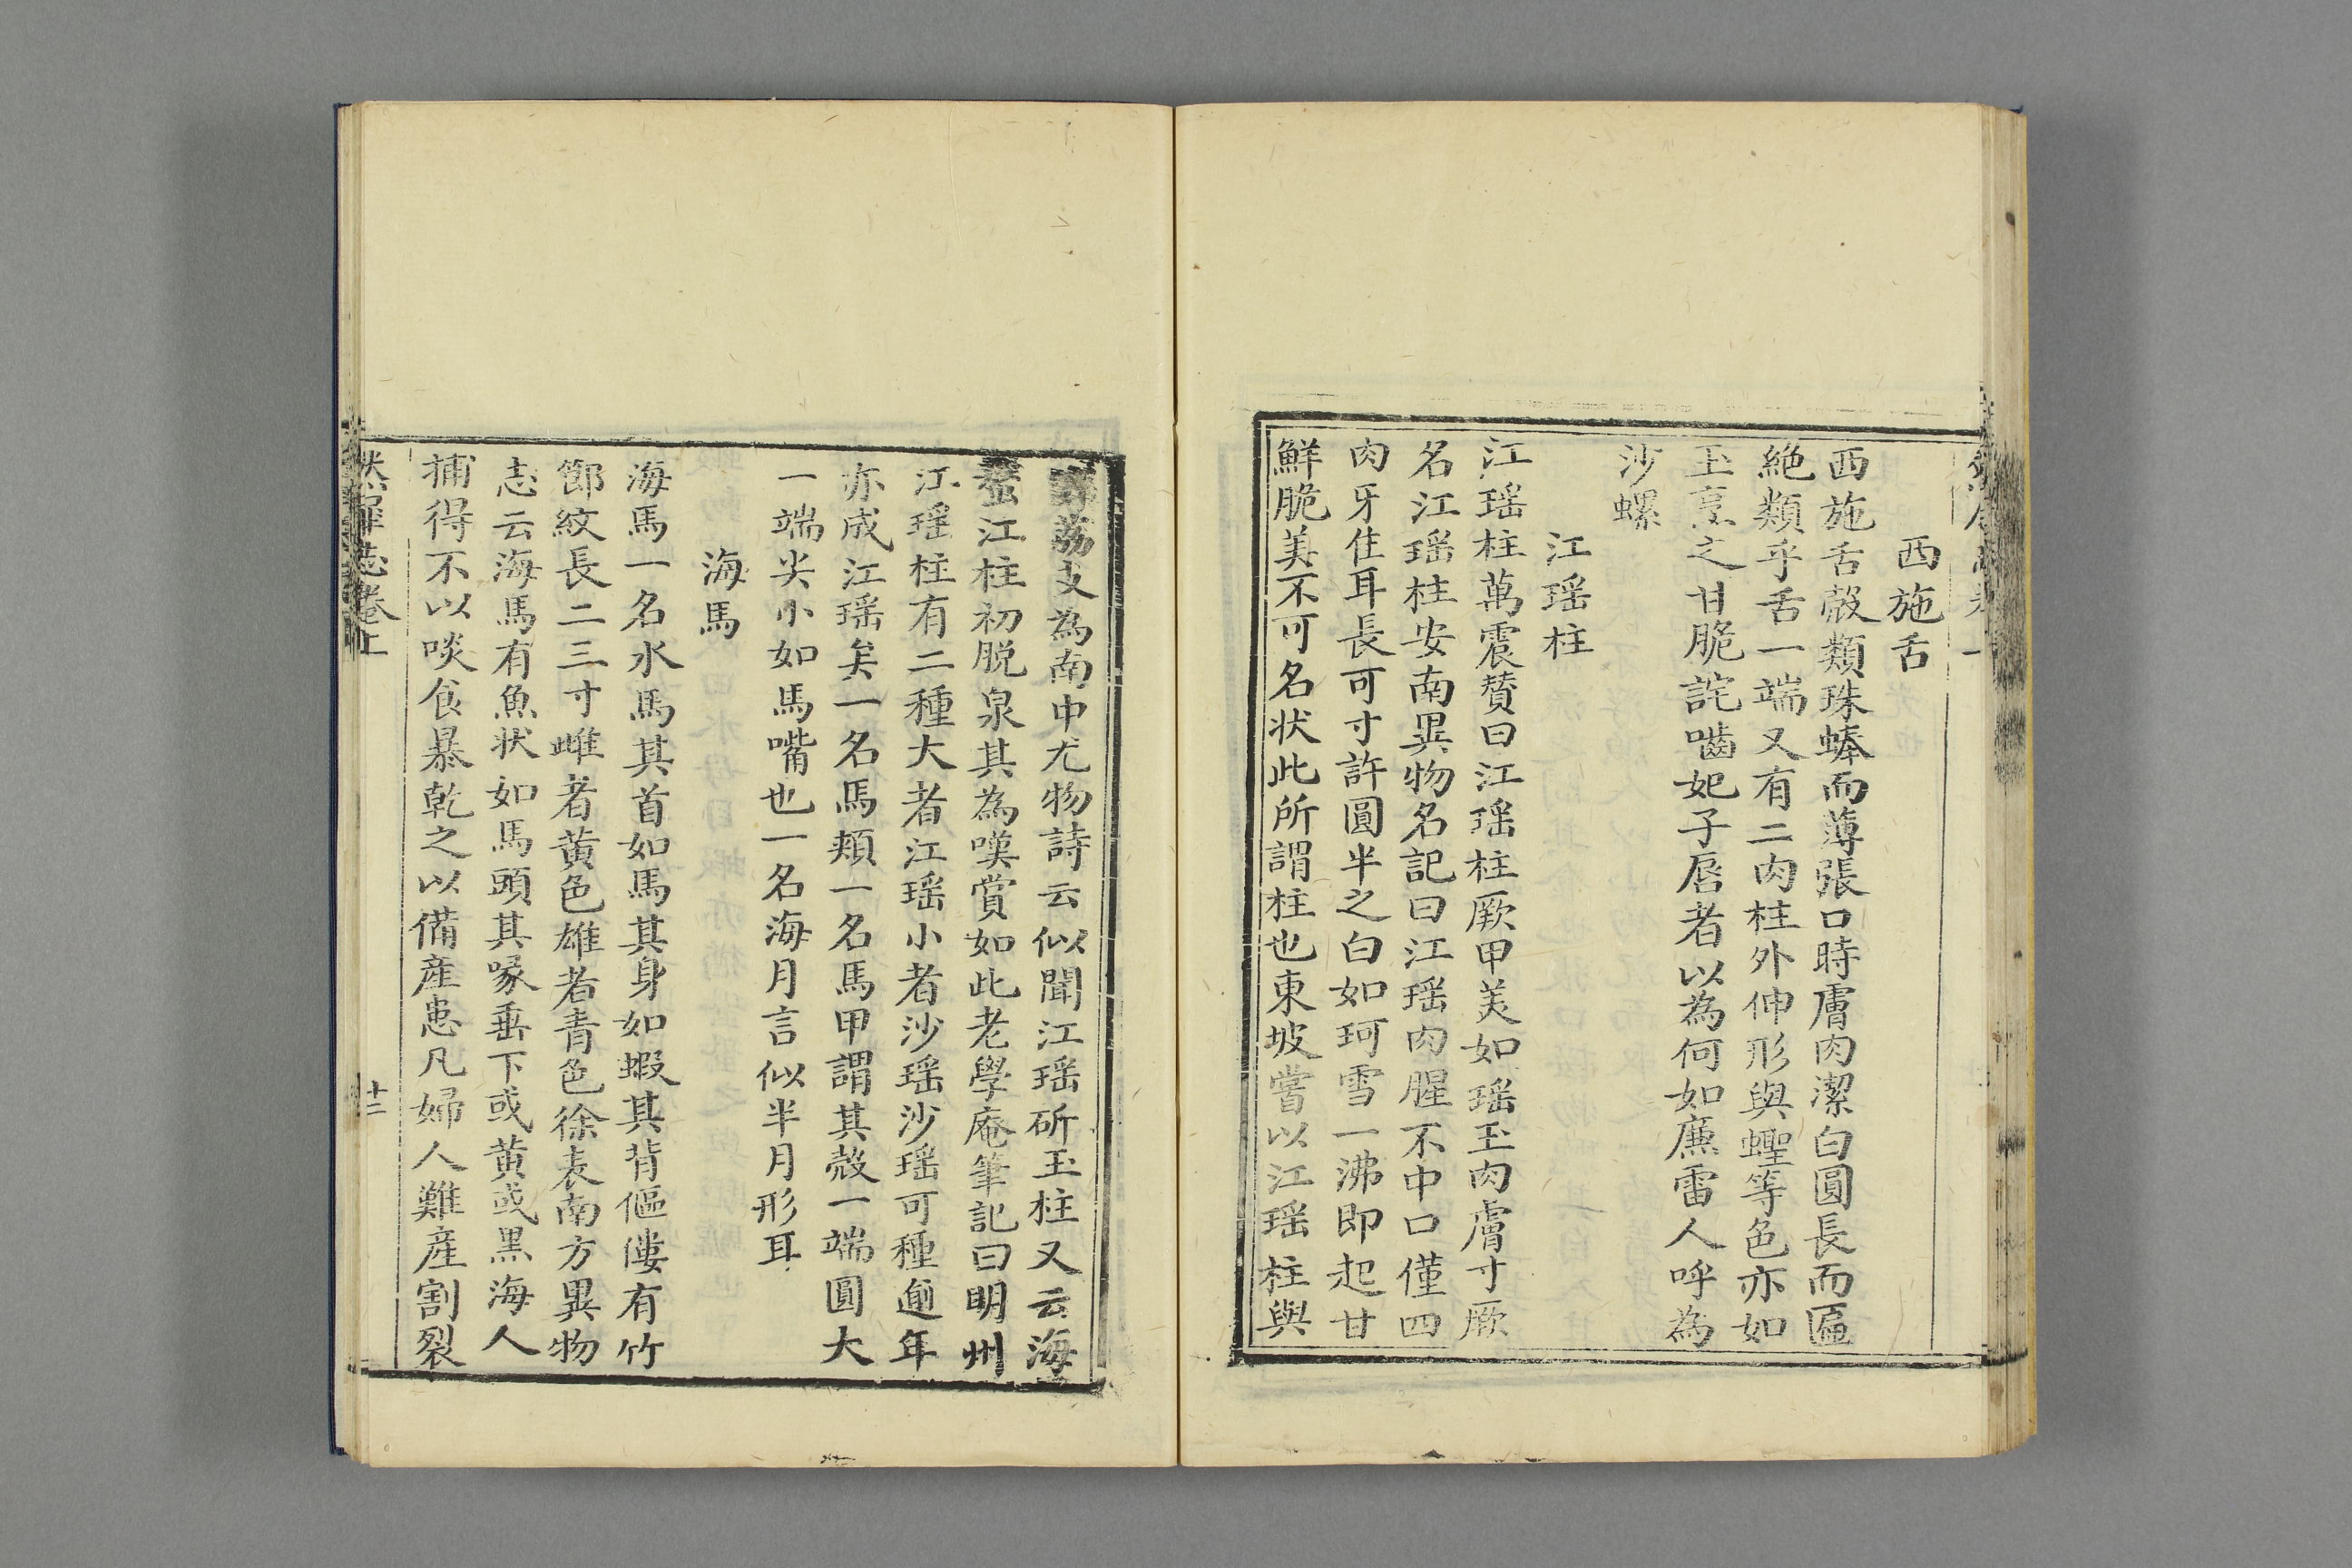 西施舌
西施舌殼類珠蜯而薄張口時膚肉潔白圓長而匾
絕類乎舌一端又有二肉柱外伸形與蟶等色亦如
玉烹之甘脆詫嚙妃子唇者以為何如廉雷人呼為
沙螺
江瑶柱
江瑶柱萬震贊曰江瑶柱厥甲美如瑶玉肉膚寸厥
名江瑶柱安南異物名記曰江瑶肉腥不中口僅四
肉牙佳耳長可寸許圓半之白如珂雪一沸即起甘
鮮脆美不可名状此所謂柱也東坡嘗以江瑶柱與
荔支為南中尤物詩云似聞江瑶斫玉柱又云海
螯江柱初脱泉其為嘆賞如此老學庵筆記曰明州
江瑶柱有二種大者江瑶小者沙瑶沙瑶可種逾年
亦成江瑶矣一名馬頬一名馬甲謂其殼一端圓大
一端尖小如馬嘴也一名海月言似半月形耳
海馬
海馬一名水馬其首如馬其身如蝦其背傴僂有竹
節紋長二三寸雌者黄色雄者青色徐表南方異物
志云海馬有魚状如馬頭其喙垂下或黄或黒海人
捕得不以啖食暴乾之以備産患凡婦人難産割裂
然犀志卷上
十二